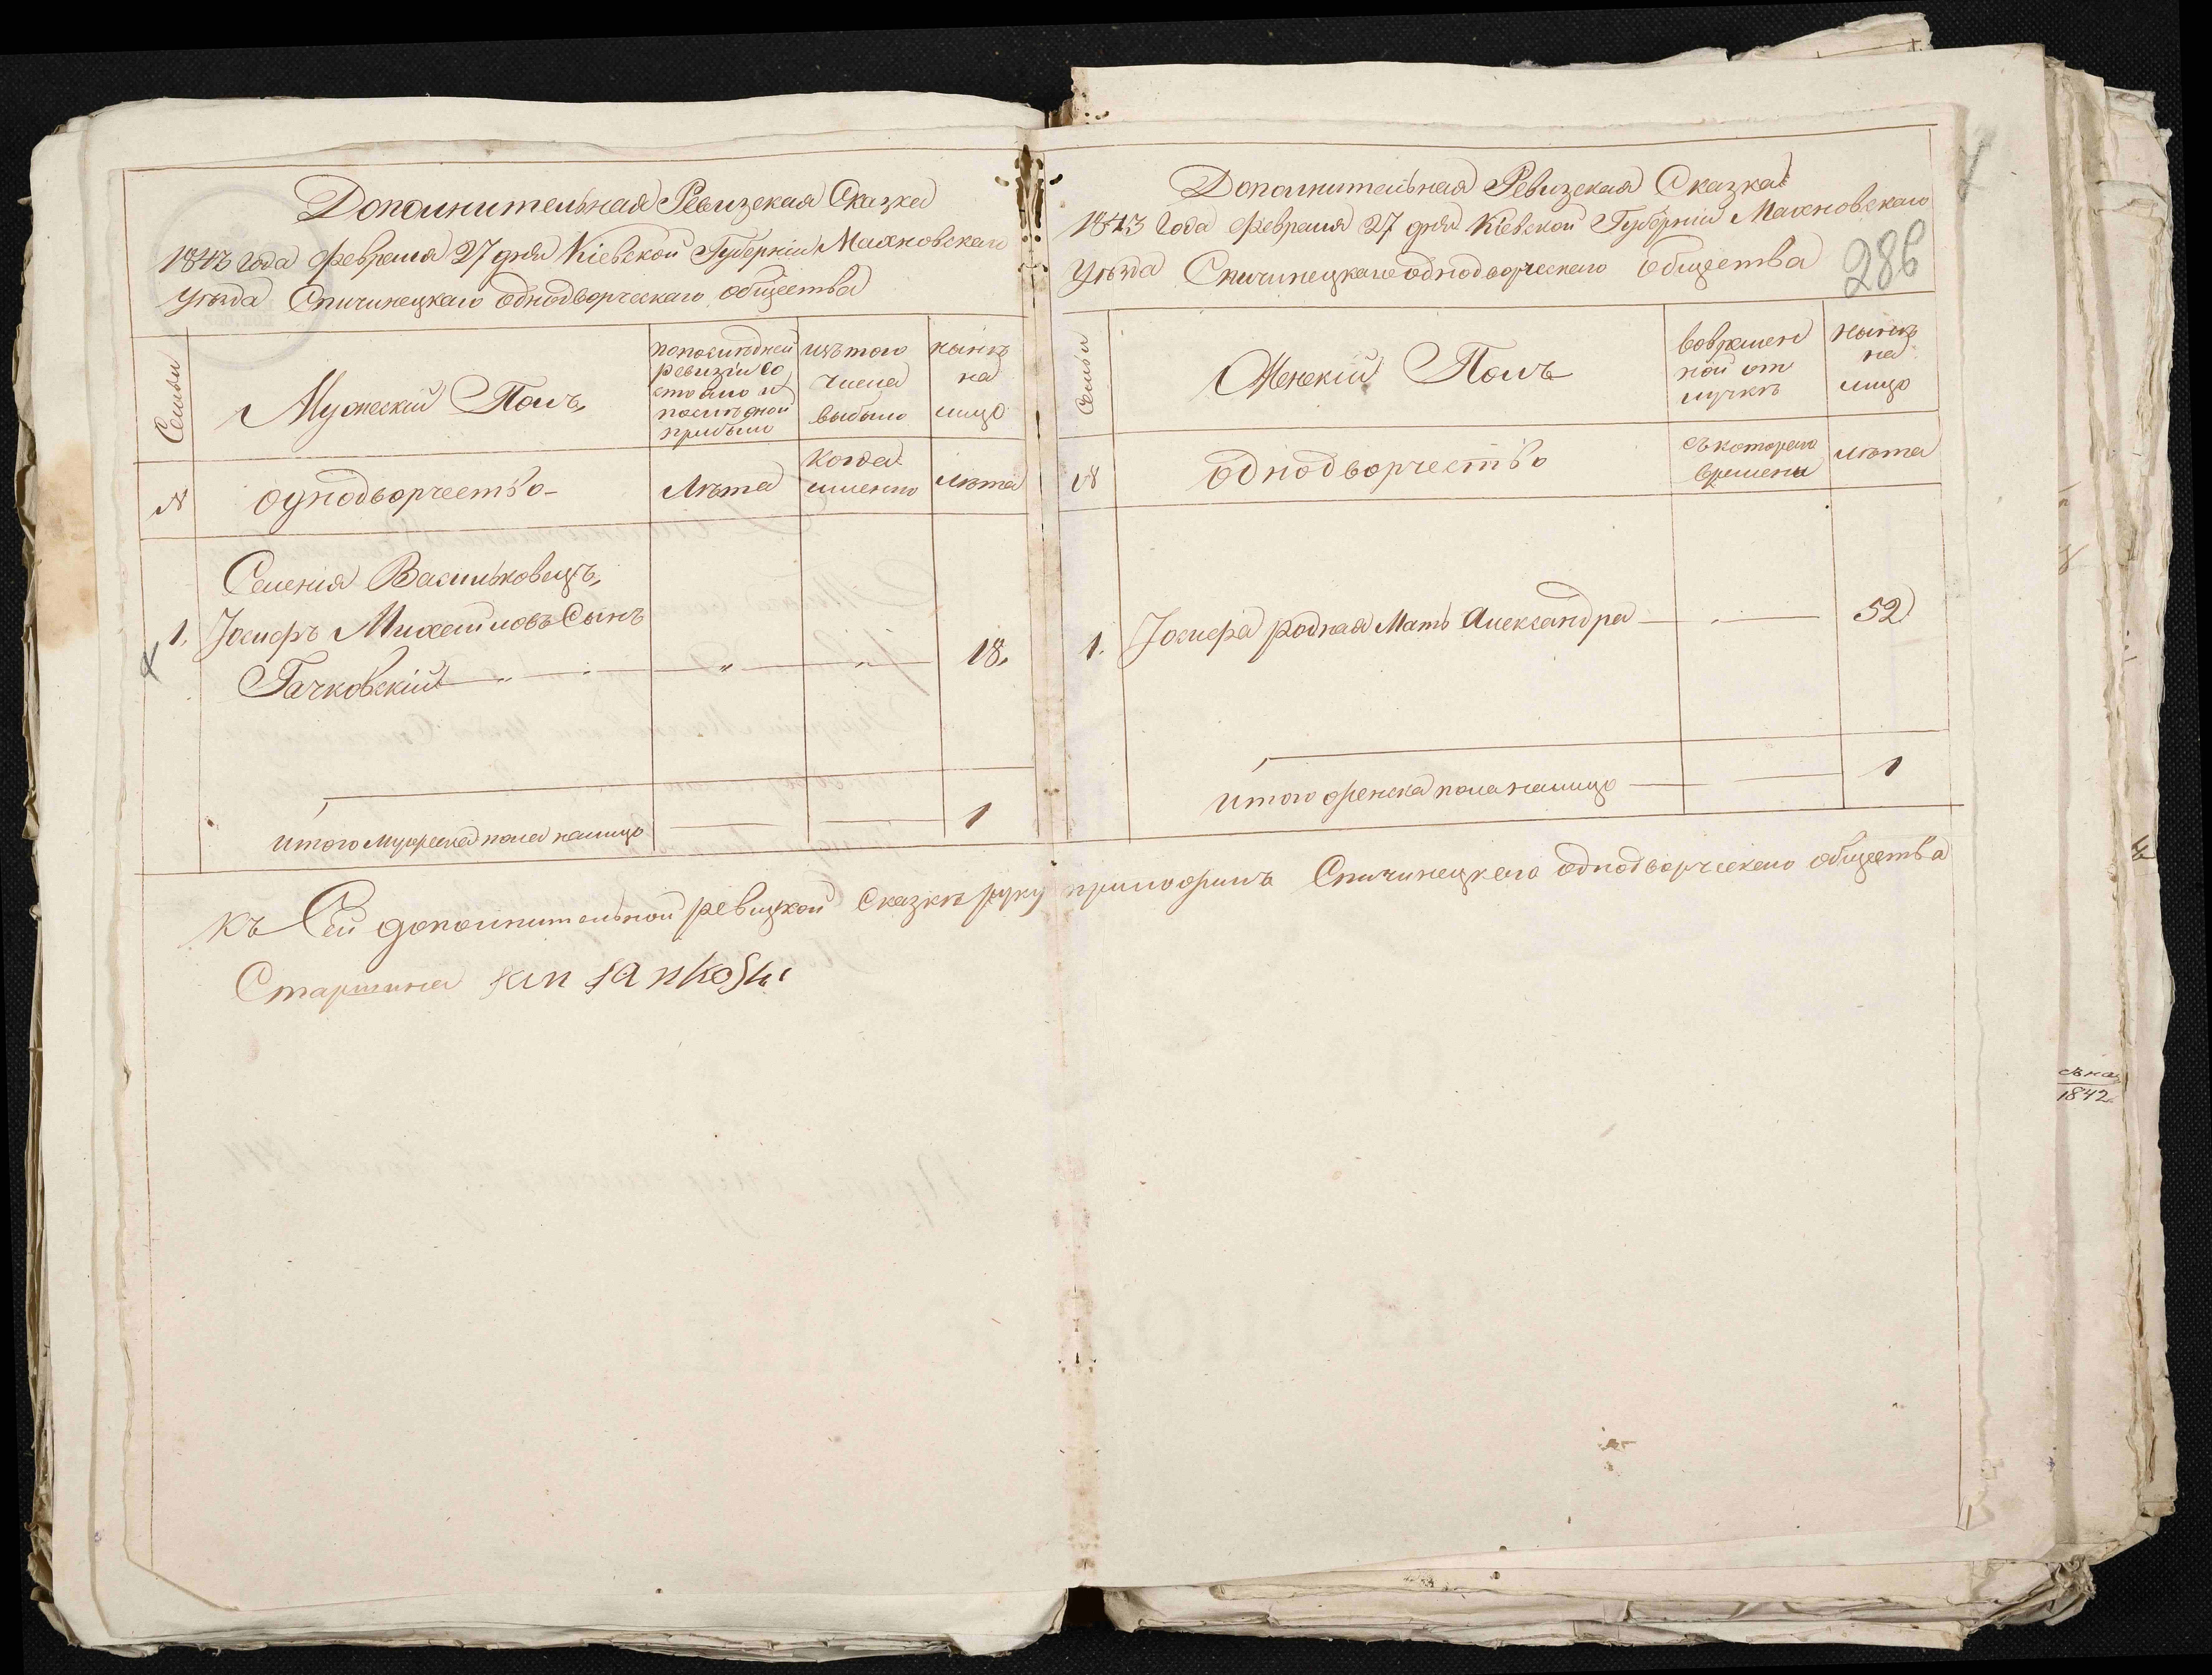 Дополнительная Ревизская Сказка
1843 года февраля 27 дня Кіевской Губерніи Махновскаго
уѣзда Спичинецкаго однодворческаго общества
Семьи
Мужескій Полъ
по послѣдней
ревизіи со
стояло и
послѣ оной
прибыло
изъ того
числа
выбыло
нынѣ
на
лицо
№
однодворчество
Лѣта
когда
именно
лѣта
Селенія Васильковецъ
1. Іосифъ Михайловъ Сынъ
Гачковскій 18.
Итого мужеска пола налицо 1
Дополнительная Ревизская Сказка
1843 года февраля 27 дня Кіевской Губерніи Махновскаго
уѣзда Спичинецкаго однодворческаго общества
286
Семьи
Женскій Полъ
во времен
ной от
лучкѣ
нынѣ
на
лицо
№
однодворчество
съ котораго
времени
лѣта
1. Іосифа родная Мать Александра 52
Итого женска пола налицо 1
Къ Сей дополнительной ревизкой Сказкѣ руку приложилъ Спичинецкаго однодворческаго общества
Старшина
1842